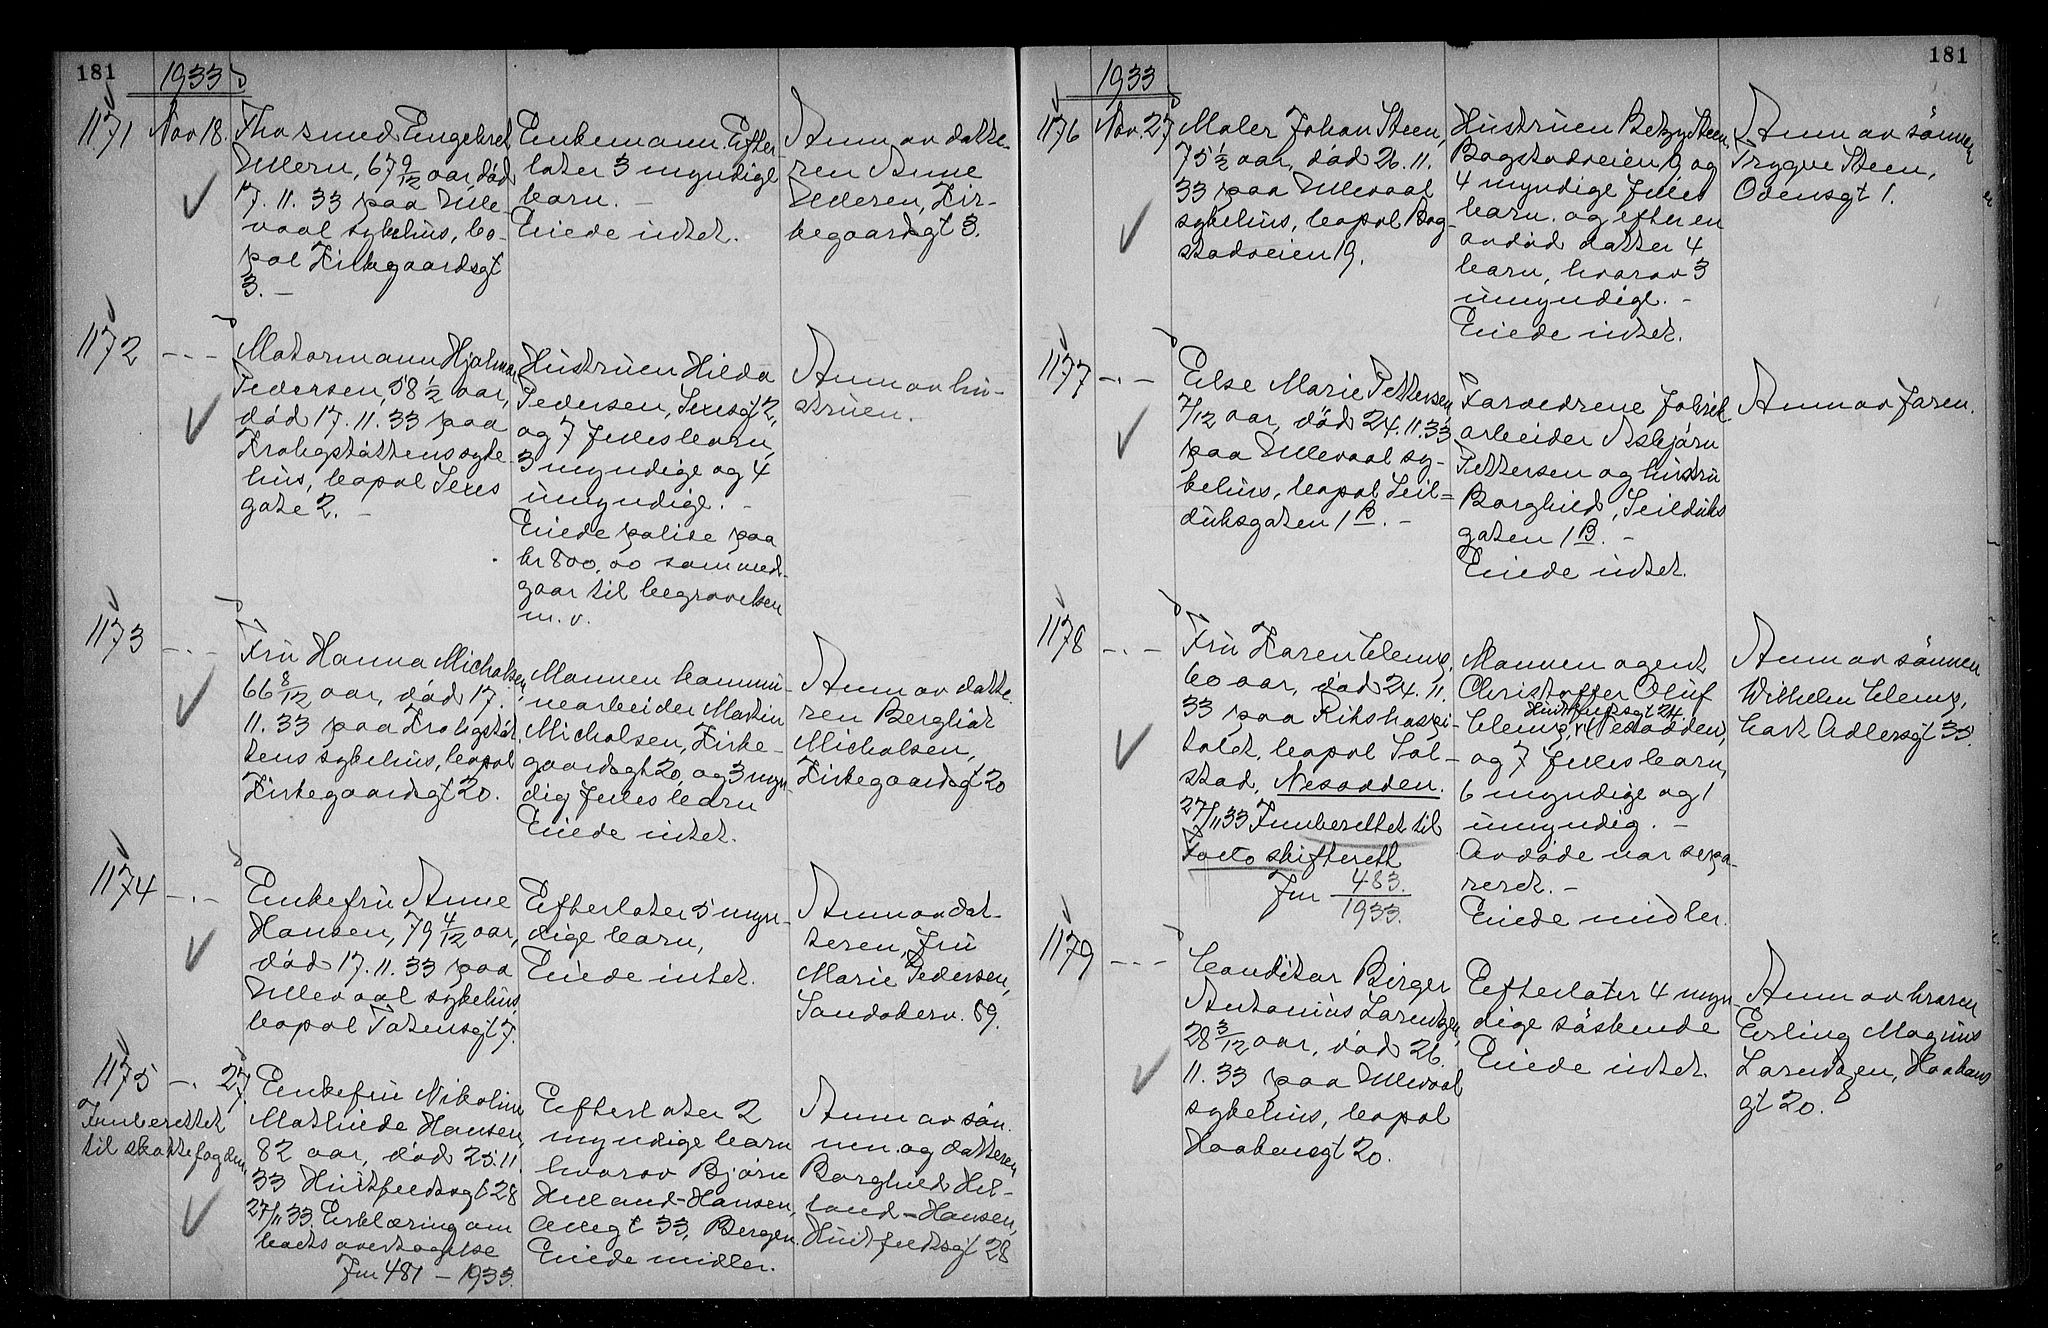 181
1933
1171
Nov 18.
Tho smed Engebret
Ullern, 67 9/12 aar, död
17. 11. 33 paa Ulle-
vaal sykehus, bo-
pæl Kirkegaardsgt
3. –
Enkemann. Efter-
later 3 myndige
barn. –
Eiede intet.
Anm av datte-
ren Anne
Ulleren, Kir-
kegaardsgt 3.
1172
– . –
Motormann Hjalmar
Pedersen, 58 1/2 aar,
död 17. 11. 33 paa
Krohgstöttens syke-
hus, bopæl Sexes
gate 2. –
Hustruen Hilda
Pedersen, Sexesgt 2,
og 7 fælles barn,
3 myndige og 4
umyndige. –
Eiede polise paa
kr 800,00 som med-
gaar til begravelsen
m. v.
Anm av hu-
struen.
1173
– . –
Fru Hanna Micholsen,
66 8/12 aar, död 17.
11. 33 paa Krohgstöt-
tens sykehus, bopæl
Kirkegaardsgt 20.
Mannen kommu-
nearbeider Martin
Micholsen, Kirke-
gaardsgt 20, og 3 myn-
dig fælles barn
Eiede intet.
Anm av datte-
ren Bergliot
Micholsen,
Kirkegaardsgt 20
1174
– . –
Enkefru Anne
Hansen, 79 4/12 aar,
död 17. 11. 33 paa
Ullevaal sykehus,
bopæl Totensgt 7.
Efterlater 5 myn-
dige barn,
Eiede intet.
Anm av dat-
teren, fru
Marie Pedersen,
Sandakerv. 59.
1175
– . 27.
Innberettet
til skattefogden
Enkefru Nikoline
Mathilde Hansen,
82 aar, död 25. 11.
33 Huitfeldtsgt 28
27/11 33. Erklæring om
boets overtagelse
Jnr 481 – 1933.
Efterlater 2
myndige barn
hvorav Björn
Helland-Hansen,
Allegt 33, Bergen.
Eiede midler.
Anm av sön-
nen og datteren
Borghild Hel-
land-Hansen,
Huitfeldtsgt 28
181
1933
1176
Nov. 27
Maler Johan Steen,
75 1/2 aar, död 26. 11.
33 paa Ullevaal
sykehus, bopæl Bog-
stadveien 19.
Hustruen Betzy Steen,
Bogstadveien 19 og
4 myndige fælles
barn. og efter en
avdöd datter 4
barn, hvorav 3
umyndige. –
Eiede intet.
Anm av sönnen
Trygve Steen,
Odensgt 1.
1177
– . –
Else Marie Pettersen
7/12 aar, död 24. 11. 33
paa Ullevaal sy-
kehus, bopæl Seil-
duksgaten 1 B. –
Forældrene fabrik
arbeider Asbjörn
Pettersen og hustru
Borghild, Seilduks
gaten 1 B. –
Eiede intet.
Anm av faren.
1178
– . –
Fru Karen Clemp,
60 aar, död 24. 11.
33 paa Rikshospi-
talet, bopæl Sol-
stad, Nesodden.
27/11 33 Innberettet til
Follo skifterett
Jnr 483.
1933.
Mannen agent
Christoffer Oluf
Huitfeldtsgt 24
Clemp, Nesodden,
og 7 fælles barn,
6 myndige og 1
umyndig. –
Avdöde var sepa-
reret. –
Eiede midler.
Anm av sönnen
Wilhelm Clemp,
Cort Adlersgt 33.
1179
– . –
Conditor Birger
Antonius Larentzen,
28 3/12 aar, död 26.
11. 33 paa Ullevaal
sykehus, bopæl
Haakonsgt 20.
Efterlater 4 myn
dige söskende
Eiede intet.
Anm av broren
Erling Magnus
Larentzen, Haakons
gt 20.